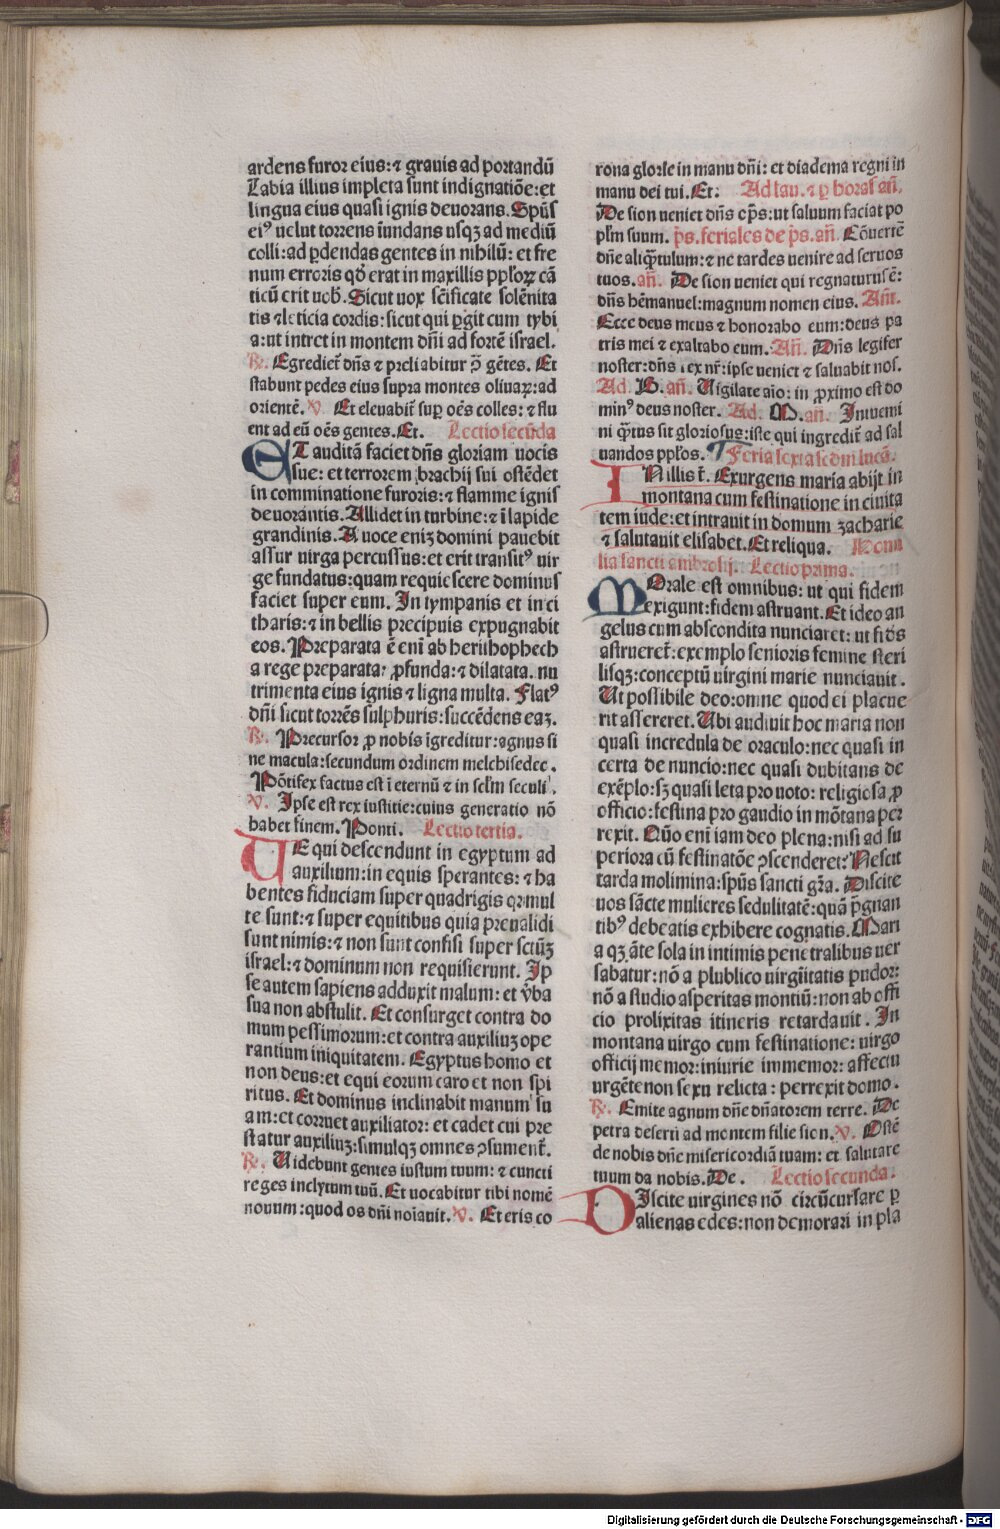 ardens furor eius: ⁊ grauis ad portandū
Labia illius impleta sunt indignatiōe: et
lingua eius quasi ignis deuorans. Spūs
eiꝰ uelut torrens iundans usqꝫ ad mediū
colli: ad ꝑdendas gentes in nihilū: et fre
num erroris qđ erat in maxillis ppl̄oꝝ cā
ticū erit uob̄. Sicut uox scīficate solēnita
tis ⁊ leticia cordis: sicut qui ꝑgit cum tybi
a: ut intret in montem dn̄i ad fortē israel.
℟. Egrediet̄ dn̄s ⁊ preliabitur ꝯ̄ gētes. Et
stabunt pedes eius supra montes oliuaꝝ: ad
orientē. ℣. Et eleuabit̄ suꝑ oēs colles: ⁊ flu
ent ad eū oēs gentes. Et. Lectio secūda
ET auditā faciet dn̄s gloriam uocis
sue: et terrorem brachij sui ostēdet
in comminatione furoris: ⁊ flamme ignis
deuorantis. Allidet in turbine: ⁊ ī lapide
grandinis. A uoce enīꝫ domini pauebit
assur uirga percussus: et erit transitꝰ uir
ge fundatus: quam requiescere dominus
faciet super eum. In tympanis et in ci
tharis: ⁊ in bellis precipuis expugnabit
eos. Preparata ē enī ab heri thophech
a rege preparata: ꝓfunda: ⁊ dilatata. nu
trimenta eius ignis ⁊ ligna multa. Flatꝰ
dn̄i sicut torrēs sulphuris: succēdens eaꝫ.
℟. Precursor ꝓ nobis īgreditur: agnus si
ne macula: secundum ordinem melchisedec.
Pōtifex factus est ī eternū ⁊ in sel̄m seculi.
℣. Ipse est rex iustitie: cuius generatio nō
habet finem. Ponti. Lectio tertia.
UE qui descendunt in egyptum ad
auxilium: in equis sperantes: ⁊ ha
bentes fiduciam super quadrigis qꝛ mul
te sunt: ⁊ super equitibus quia preualidi
sunt nimis: ⁊ non sunt confisi super sctūꝫ
israel: ⁊ dominum non requisierunt. Ip
se autem sapiens adduxit malum: et v̄ba
sua non abstulit. Et consurget contra do
mum pessimorum: et contra auxiliuꝫ ope
rantium iniquitatem. Egyptus homo et
non deus: et equi eorum caro et non spi
ritus. Et dominus inclinabit manum su
am: et corruet auxiliator: et cadet cui pre
statur auxiliuꝫ: simulqꝫ omnes ꝯsument̄.
℟. Uidebunt gentes iustum tuum: ⁊ cuncti
reges inclytum tuū. Et uocabitur tibi nomē
nouum: quod os dn̄i noīauit. ℣. Et eris co
rona glorie in manu dn̄i: et diadema regni in
manu dei tui. Et: Ad lau. ⁊ ꝑ horas an̄.
De sion ueniet dn̄s op̄s: ut saluum faciat po
pl̄m suum. p̄s. feriales de p̄s. an̄. Cōuertē
dn̄e aliqꝫtulum: ⁊ ne tardes uenire ad seruos
tuos. an̄. De sion ueniet qui regnaturus ē:
dn̄s hēmanuel: magnum nomen eius. An̄.
Ecce deus meus ⁊ honorabo eum: deus pa
tris mei ⁊ exaltabo eum. An̄. Dn̄s legifer
noster: dn̄s rex nr̄: ipse ueniet ⁊ saluabit nos.
Ad. B. an̄. Uigilate aīo: in ꝓximo est do
minꝰ deus noster. Ad. M. an̄. Intuemi
ni qꝫtus sit gloriosus: iste qui ingredit̄ ad sal
uandos ppl̄os. Feria sexta scd̄m lucā.
IN illis t̄. Exurgens maria abijt in
montana cum festinatione in ciuita
tem iude: et intrauit in domum zacharie
⁊ salutauit elisabet. Et reliqua. Homi
lia sancti ambrosij. Lectio prima.
MOrale est omnibus: ut qui fidem
exigunt: fidem astruant. Et ideo an
gelus cum abscondita nunciaret: ut fides
astrueret̄: exemplo senioris femine steri
lisqꝫ: conceptū uirgini marie nunciauit.
Ut possibile deo: omne quod ei placue
rit assereret. Ubi audiuit hoc maria non
quasi incredula de oraculo: nec quasi in
certa de nuncio: nec quasi dubitans de
exēplo: sꝫ quasi leta pro uoto: religiosa ꝓ
officio: festina pro gaudio in mōtana per
rexit. Quo enī iam deo plena: nisi ad su
periora cū festinatōe ꝯscenderet: Nescit
tarda molimina: spūs sancti gr̄a. Discite
uos sācte mulieres sedulitatē: quā p̄gnan
tibꝰ debeatis exhibere cognatis. Mari
a qꝫ āte sola in intimis penetralibus uer
sabatur: nō a plublico uirgītatis pudor:
nō a studio asperitas montiū: non ab offi
cio prolixitas itineris retardauit. In
montana uirgo cum festinatione: uirgo
officij memor: iniurie immemor: affectu
urgēte non sexu relicta: perrexit domo.
℟. Emite agnum dn̄e dn̄atorem terre. De
petra deserti ad montem filie sion. ℣. Ostē
de nobis dn̄e misericordiā tuam: et salutare
tuum da nobis. De. Lectio secunda.
DIscite uirgines nō circūcursare ꝑ
alienas edes: non demorari in pla
Digitalisierung gefördert durch die Deutsche Forschungsgemeinschaft - DFG